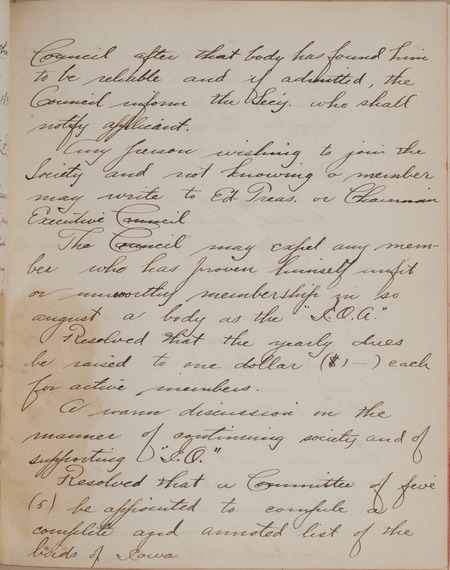 Council after that body has found him
to be reliable and if admitted, the
Council inform the Sec'y. who shall
notify applicant.
Any person wishing to join the
Society and not knowing a member
may write to Ed. Treas. or Chairman
Executive Council
The Council may expel any mem-
ber who has proven himself unfit
or unworthy membership in so
august a body as the "I.O.A."
Resolved that the yearly dues
be raised to one dollar ($1—) each
for active members.
A warm discussion on the
manner of continuing society and of
supporting "I.O."
Resolved that a Committee of five
(5) be appointed to compile a
complete and annoted list of the
birds of Iowa.